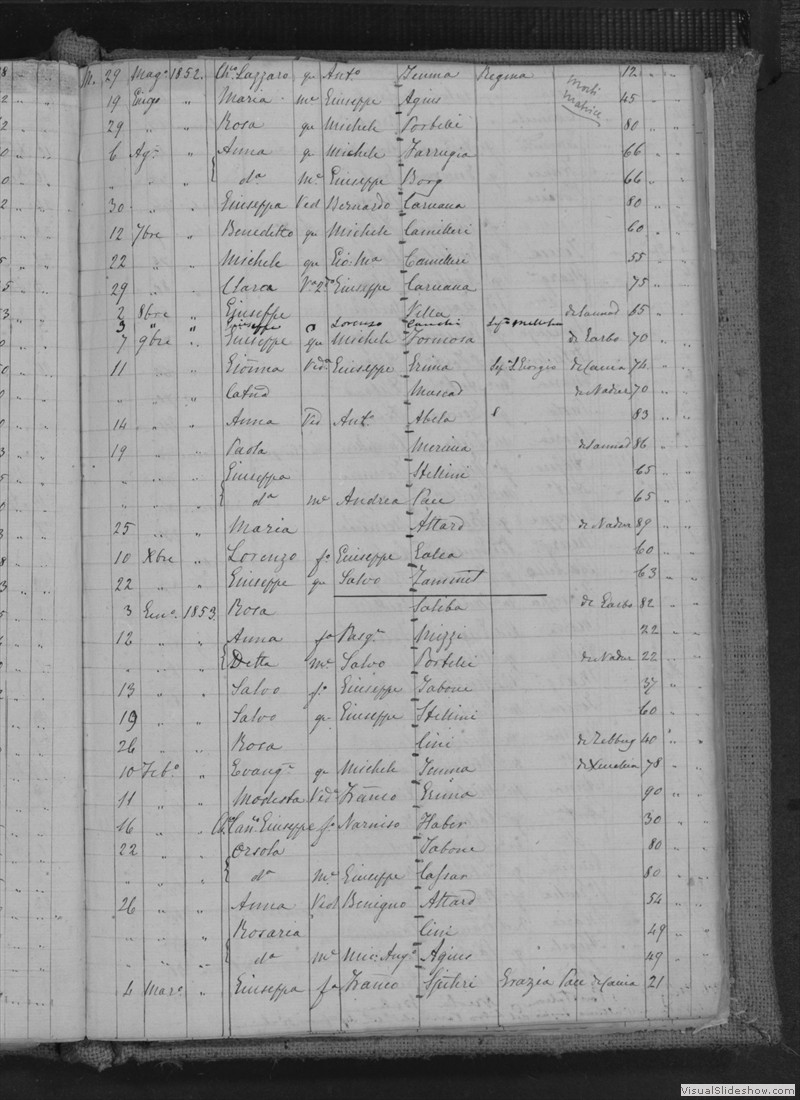 M. 29 Mag.º 1852. Ch.º Lazzaro qu Ant.º Zemma Regina 12 " "
19 Eugº " Maria me Giuseppe Agius Morti Matrice 45 " "
29 " " Rosa qu Michele Portelli 80 " "
6 Ag.º " Anna qu Michele Farrugia 66 " "
" " " da me Giuseppe Borg 66 " "
30 " " Giuseppa Ved Bernardo Caruana 80 " "
12 7bre " Benedetto qu Michele Camilleri 60 " "
22 " " Michele qu Gio Ma Camilleri 55 " "
29 " " Giuseppe Caruana 75 " "
2 8bre " Giuseppe Vella de Sannad 65 " "
3 " " Giuseppe Lorenzo
7 9bre " Giuseppe qu Michele Formosa de Garbo 70 " "
11 " " Gionna Veda Giuseppe Grima Giorgio 74 " "
" " " Catna Muscad de Nadur 70 " "
14 " " Anna Ved Ant.º Abela 83 " "
19 " " Paola de Sannad 86 " "
" " " Giuseppa Stellini 65 " "
" " " da me Andrea Pace 65 " "
25 " " Maria Attard de Nadur 89 " "
10 Xbre " Lorenzo fo Giuseppe Galea 60 " "
22 " " Giuseppe qu Salvo Zammit 63 " "
3 Gen.º 1853 Rosa Saliba de Garbo 82 " "
12 " " Anna fa Pasq.e Mizzi 22 " "
" " " Detta me Salvo Portelli de Nadur 22 " "
13 " " Salvo fo Giuseppe Tabone 37 " "
19 " " Salvo qu Giuseppe Stellini 60 " "
26 " " Rosa Cini de Zebbug 40 " "
10 Feb.º " Evang.ª qu Michele 78 " "
11 " " Modesta Veda Franco Grima 90 " "
16 " " Giuseppe fo Narciso Haber 30 " "
22 " " Orsola Tabone 80 " "
" " " da me Giuseppe Cassar 80 " "
26 " " Anna Ved Benigno Attard 54 " "
" " " Rosaria Cini 49 " "
" " " da me Mic: Ang.º Agius 49 " "
4 Marº " Giuseppa fa Franco Spiteri Grazia Pace 21 " "
VisualSlideshow.com